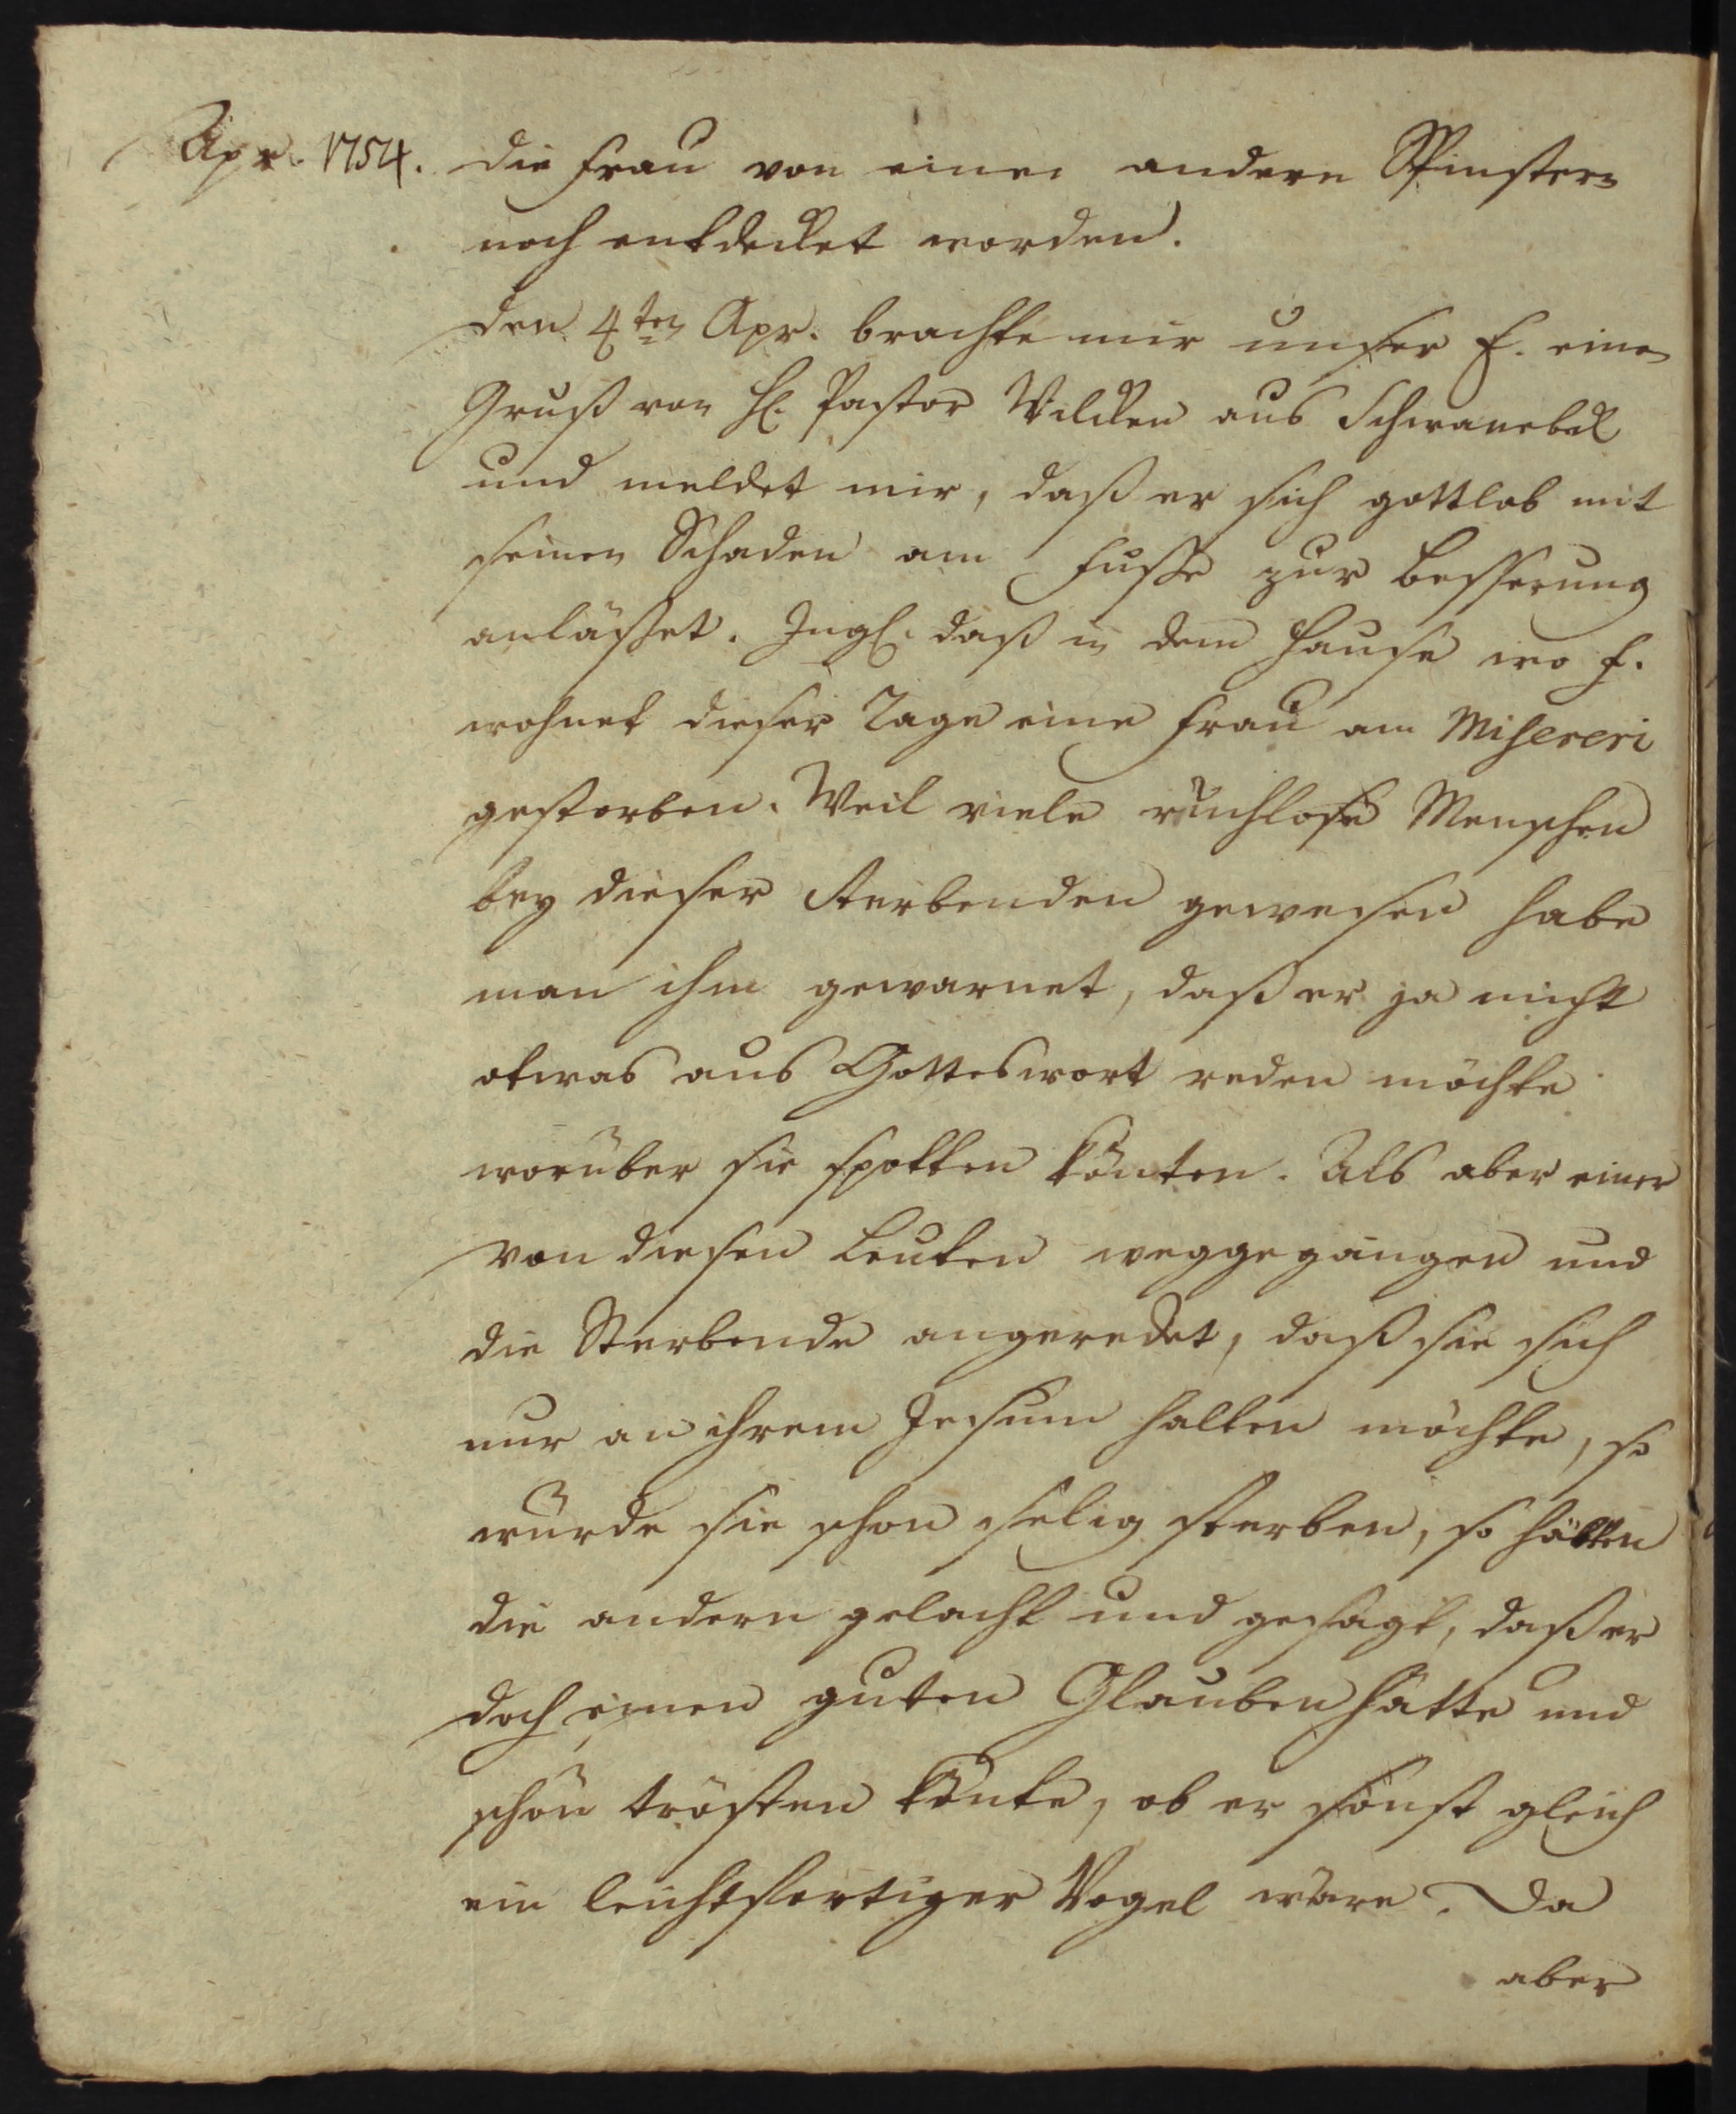 Apr. 1754.
die Frau von einer andern
noch entdecket worden.
den 4ten Apr. brachte mir unser F. einen
Gruß von H. Pastor Wilcken aus Schwanebek
und meldet mir, daß er sich gottlob mit
seinen Schaden am Fusse zur Besserung
anlässet. Ingl. daß in dem Hause wo F.
wohnet dieser Tage eine Frau am Misereri
gestorben. Weil viele ruchlose Menschen
bey dieser Sterbenden gewesen habe
man ihm gewarnet, daß er ja nicht
etwas aus Gotteswort reden möchte
worüber sie spotten könten. Als aber einer
von diesen Leuten weggegangen und
die Sterbende angeredet, daß sie sich
nur an ihrem Jesum halten möchte, so
würde sie schon selig sterben, so hätten
die andern gelacht und gesagt, daß er
doch einen guten Glauben hätte und
schön trösten könte, ob er sonst gleich
ein leichtfertiger Vogel wäre. Da
aber